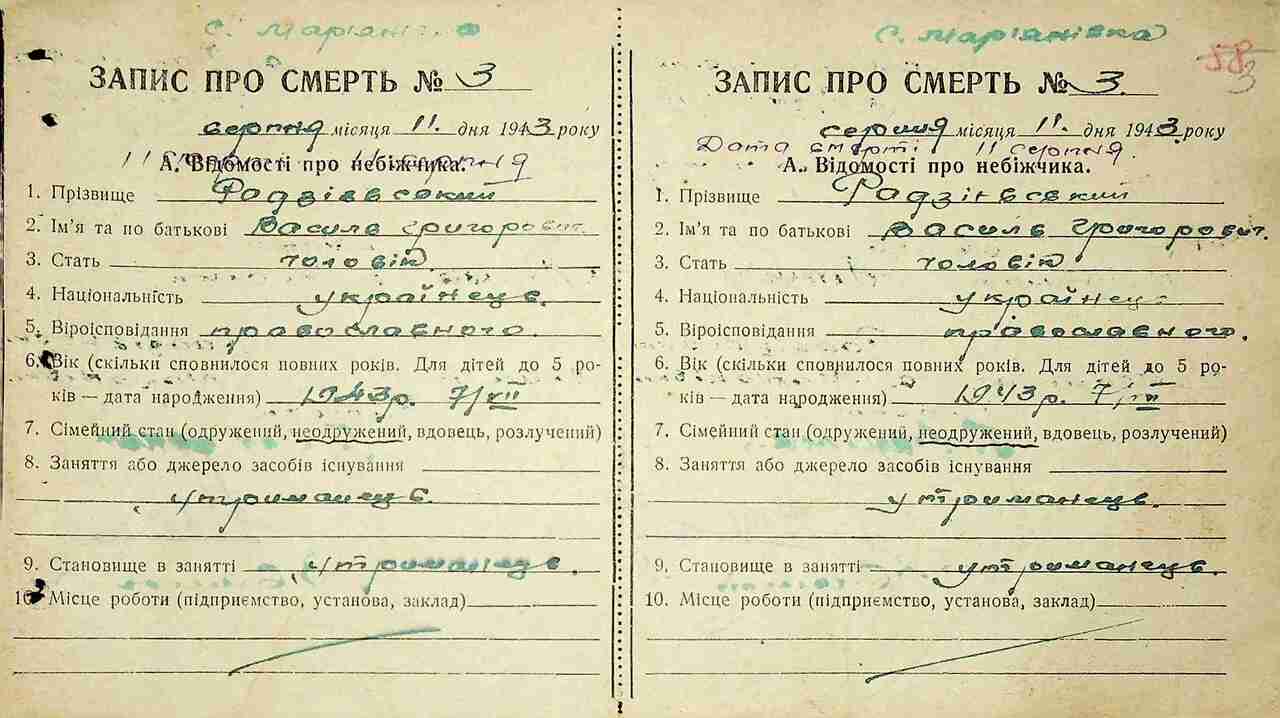 с. Мар'янівка
ЗАПИС ПРО СМЕРТЬ № 3
серпня місяця 11. дня 1943 року
11 серпня
А. Відомості про небіжчика.
1. Прізвище Радзієвський
2. Ім'я та по батькові Василь Григорович.
3. Стать чоловік
4. Національність українець.
5. Віроісповідання православного.
6. Вік (скільки сповнилося повних років. Для дітей до 5 ро-
ків — дата народження) 1943 р. 7/VII
7. Сімейний стан (одружений, неодружений, вдовець, розлучений)
8. Заняття або джерело засобів існування
утриманець.
9. Становище в занятті утриманець.
10. Місце роботи (підприємство, установа, заклад)
с. Мар'янівка
58
3
ЗАПИС ПРО СМЕРТЬ № 3.
серпня місяця 11. дня 1943 року
Дата смерті 11 серпня
А. Відомості про небіжчика.
1. Прізвище Радзієвський
2. Ім'я та по батькові Василь Григорович.
3. Стать чоловік
4. Національність українець
5. Віроісповідання православного.
6. Вік (скільки сповнилося повних років. Для дітей до 5 ро-
ків — дата народження) 1943 р. 7/VII
7. Сімейний стан (одружений, неодружений, вдовець, розлучений)
8. Заняття або джерело засобів існування
утриманець.
9. Становище в занятті утриманець.
10. Місце роботи (підприємство, установа, заклад)